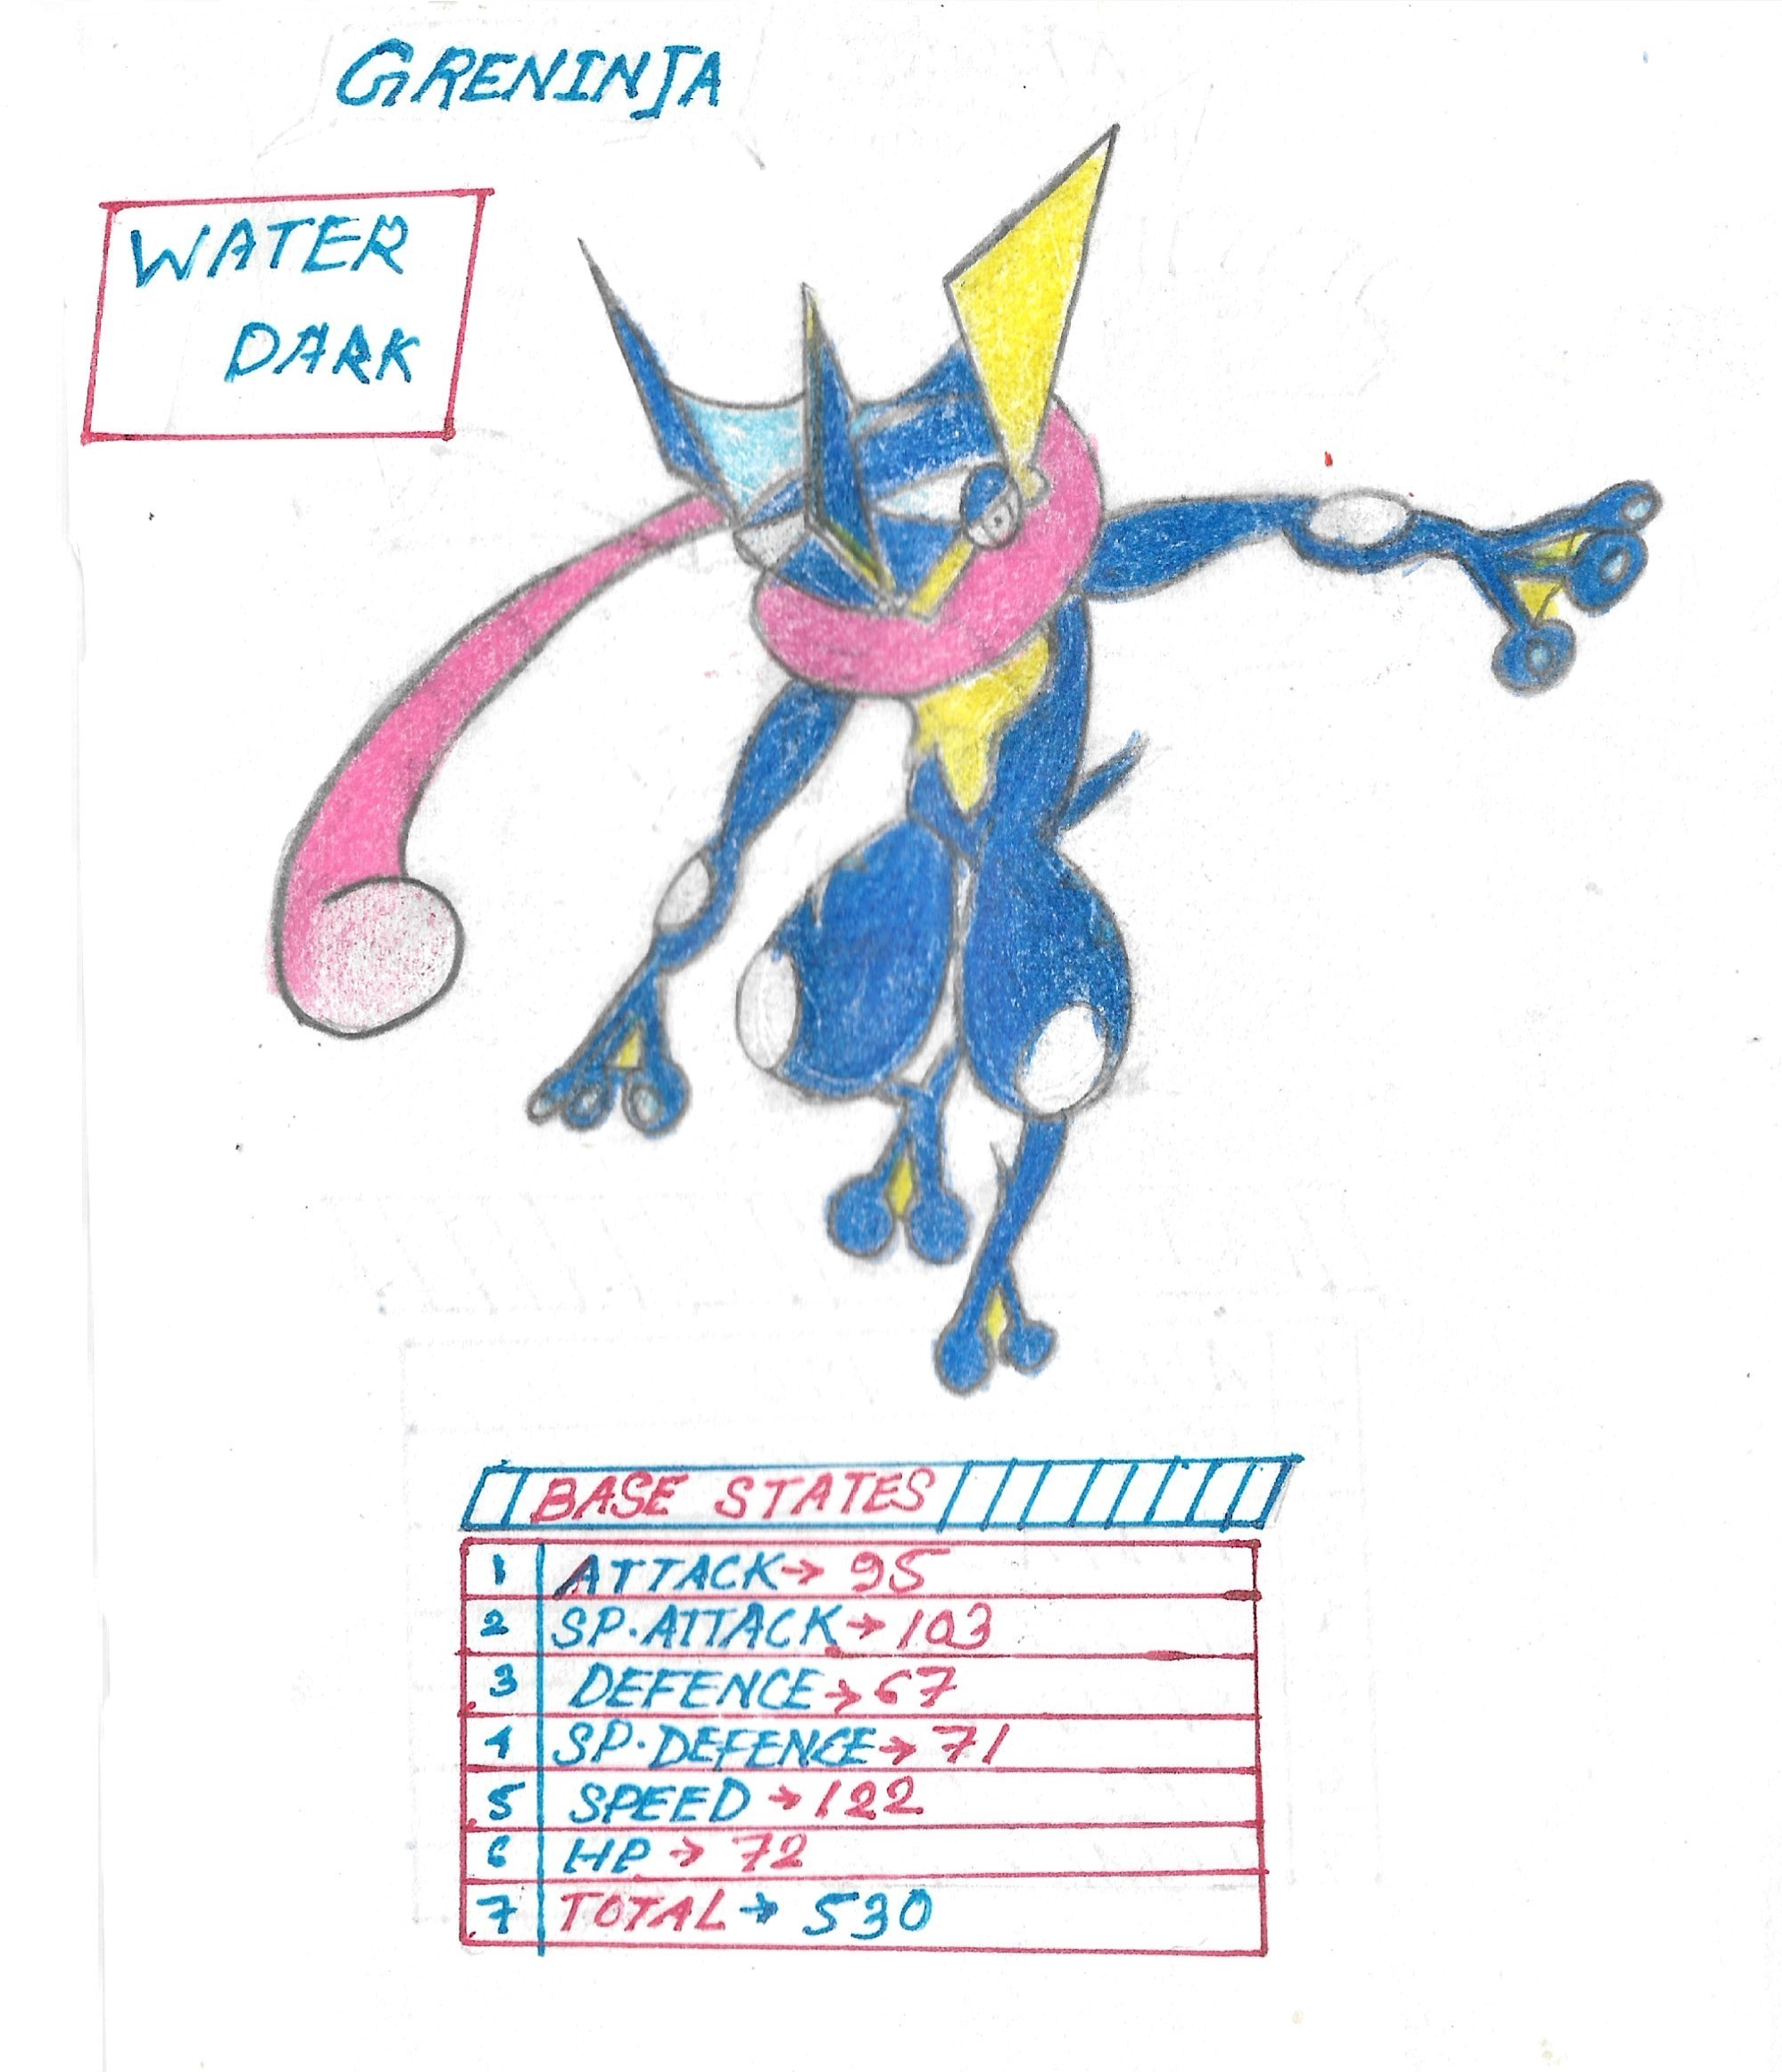 GRENINJA
WATER
DARK
BASE STATES
1 ATTACK→ 95
2 SP.ATTACK→ 103
3 DEFENCE→ 67
4 SP.DEFENCE→ 71
5 SPEED→122
6 HP→ 72
7 TOTAL→ 530